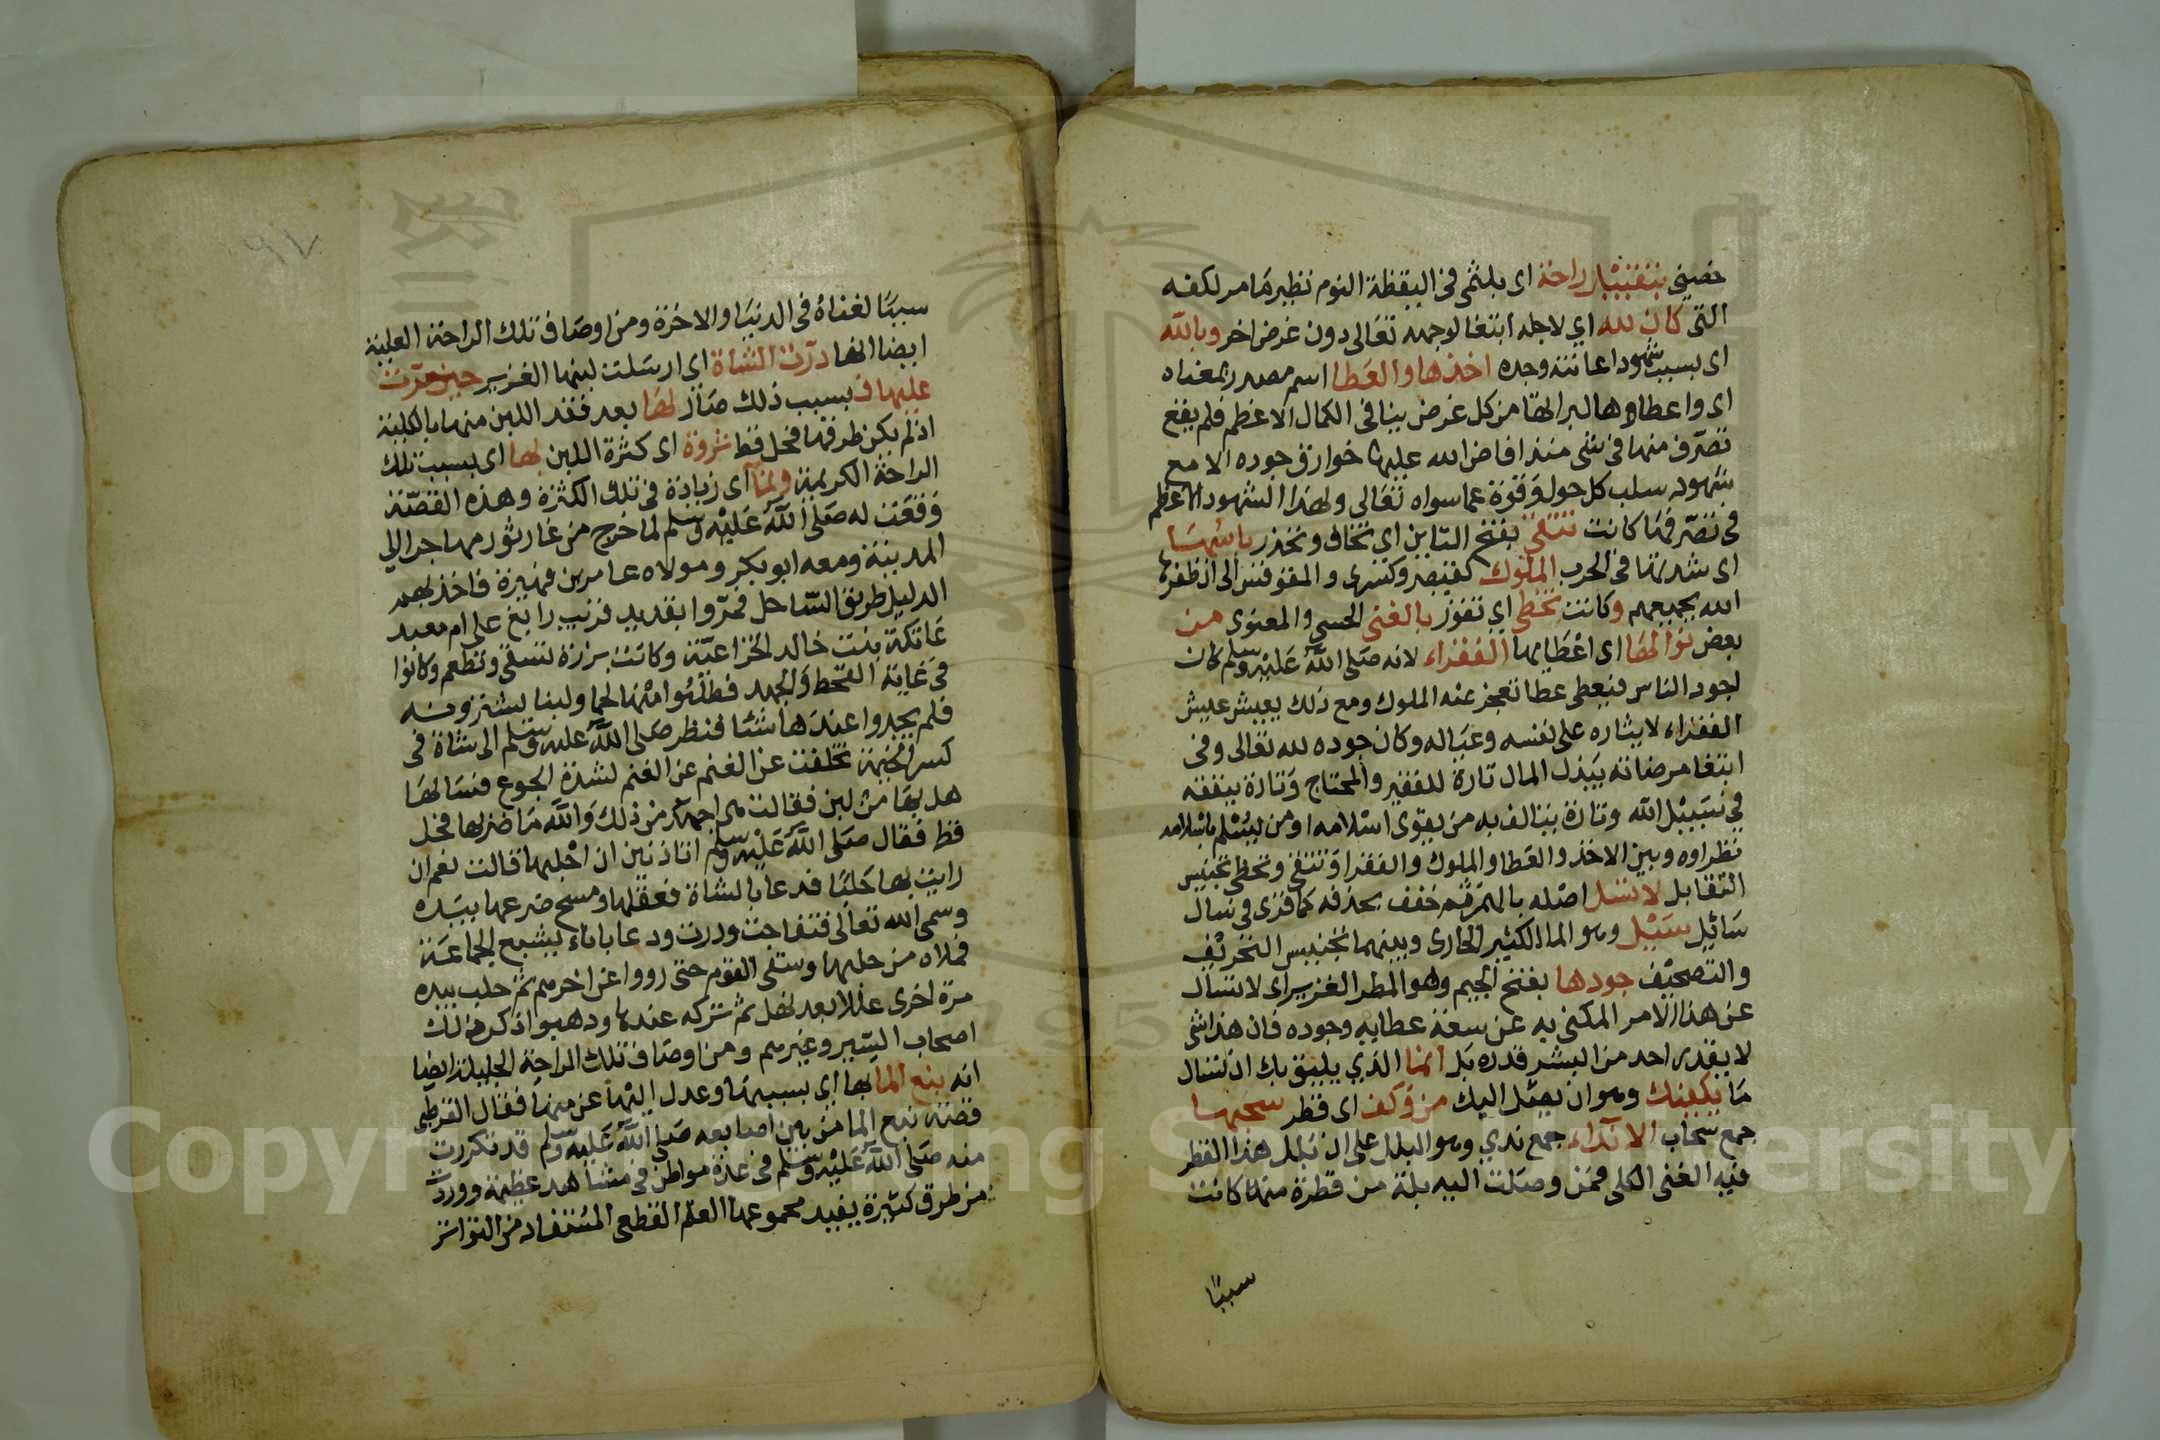 خصني بتقبيل راحة اى بلثمى فى اليقظة النوم نظير مامر لكفه
التى كان لله اي لاجله ابتغا لوجهه تعالى دون غرض اخر وبالله
اى بسبب شهود اعانته وحده اخذها والعطا اسم مصدر بمعناه
اى واعطاوها لبراتها من كل غرض ينافى الكمال الاعظم فلم يقع
تصرف منها فى شى منذ افاض الله عليها خوارق جوده الا مع
شهود سلب كل حول وقوة عما سواه تعالى ولهذا الشهود الاعظم
فى تصرفها كانت تتقى بفتح التاين اي تخاف وتحذر باسها
اى شدتها فى الحرب الملوك كقيصر وكسرى والمقوقس الى ان ظفره
الله بجميعهم وكانت تحظى اي تفوز بالغنى الحسى والمعنوي من
بعض نوالها اى اعطايها الفقراء لانه صلى الله عليه وسلم كان
اجود الناس فيعطى عطا تعجز عنه الملوك ومع ذلك يعيش عيش
الفقراء لايثاره على نفسه وعياله وكان جوده لله تعالى وفى
ابتغا مرضاته يبذل المال تارة للفقير والمحتاج وتارة ينفقه
في سبيل الله وتارة يتالف به من يقوى اسلامه او من يسلم باسلامه
نظراوه وبين الاخذ والعطا والملوك والفقرا وتتقى وتحظى تجنيس
التقابل لا تسل اصله بالهمز ثم خفف بحذفه كما قرى في سال
سائل سيل وهو الما الكثير الجارى وبينهما تجنيس التحريف
والتصحيف جودها بفتح الجيم وهو المطر الغزير اى لا تسال
عن هذا الامر المكنى به عن سعة عطايه وجوده فان هذا شى
لا يقدر احد من البشر قدره بل انما الذي يليق بك ان تسال
ما يكفيك وهو ان يصل اليك من وكف اى قطر سحبها
جمع سحاب الانداء جمع ندي وهو البلل على ان بلل هذا القطر
فيه الغنى الكلى فمن وصلت اليه بلة من قطرة منها كانت
سببا
سببا لغناه فى الدنيا والاخرة ومن اوصاف تلك الراحة العلية
ايضا انها درت الشاة اى ارسلت لبنها الغزير حين مرت
عليها فبسبب ذلك صار لها بعد فقد اللبن منها بالكلية
اذ لم يكن طرقها فحل قط ثروة اى كثرة اللبن لها اى بسبب تلك
الراحة الكريمة ونما اى زيادة فى تلك الكثرة وهذه القصة
وقعت له صلى الله عليه وسلم لما خرج من غار ثور مهاجرا الي
المدينة ومعه ابو بكر ومولاه عامر بن فهيرة فاخذ بهم
الدليل طريق الساحل فمروا بقديد قريب رابغ على ام معبد
عاتكة بنت خالد الخزاعية وكانت برزة تسقى وتطعم وكانوا
فى غاية القحط والجهد فطلبوا منها لحما ولبنا يشترونه
فلم يجدوا عندها شيا فنظر صلى الله عليه وسلم الى شاة فى
كسر الخيمة تخلفت عن الغنم عن الغنم لشدة الجوع فسالها
هل بها من لبن فقالت هى اجهد من ذلك والله ما ضربها فحل
قط فقال صلى الله عليه وسلم اتاذنين ان احلبها قالت نعم ان
رايت بها حلبا فدعا بالشاة فعقلها ومسح ضرعها بيده
وسمى الله تعالى فتفاجت ودرت ودعا باناء يشبع الجماعة
فملاه من حلبها وسقى القوم حتى رووا عن اخرهم ثم حلب بيده
مرة اخرى عللا بعد نهل ثم تركه عندها وذهبوا ذكر ذلك
اصحاب السير وغيرهم ومن اوصاف تلك الراحة الجليلة ايضا
انه نبع الما بها اى بسببها وعدل اليها عن منها فقال القرطبى
قصة نبع الما من بين اصابعه صلى الله عليه وسلم قد تكررت
منه صلى الله عليه وسلم فى عدة مواطن فى مشاهد عظيمة ووردت
من طرق كثيرة يفيد مجموعها العلم القطعى المستفاد من التواتر